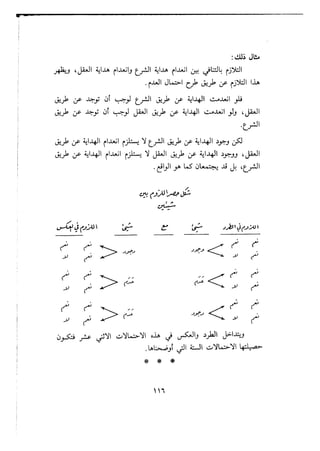 مثال ذلك :
التلازم بالتنافي بين انعدام هداية الشرع وانعدام هداية العقل ، ويظهر
هذا التلازم عن طريق طرح احتمال العدم .
فلو انعدمت الهداية عن طريق الشرع لوجب أن توجد عن طريق
العقل ، ولو انعدمت الهداية عن طريق العقل لوجب أن توجد عن طريق
الشرع .
لكن وجود الهداية عن طريق الشرع لا يستلزم انعدام الهداية عن طريق
العقل ، ووجود الهداية عن طريق العقل لا يستلزم انعدام الهداية عن طريق
الشرع ، بل قد يجتمعان كما هو الواقع .
شكل حصر اللزوم بين
شيئين
اللزوم في الطرد شيئ مع شيئ اللزوم في العكس
نعم نعم نعم نعم
وجود وجود
نعم لا نعم لا
نعم نعم نعم نعم
عدم عدم
نعم لا نعم لا
نعم نعم نعم نعم
وجود عدم
نعم لا نعم لا
ويتداخل الطرد والعكس في هذه الاحتمالات الاثني عشر فتكون
حصيلتها الاحتمالات الستة التي أوضحناها .
* * *
١١٦